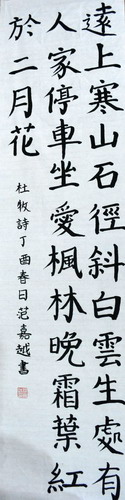 遠上寒山石徑斜白雲生處有
人家停車坐愛楓林晚霜葉紅
於二月花
杜牧詩丁酉春日范嘉越書